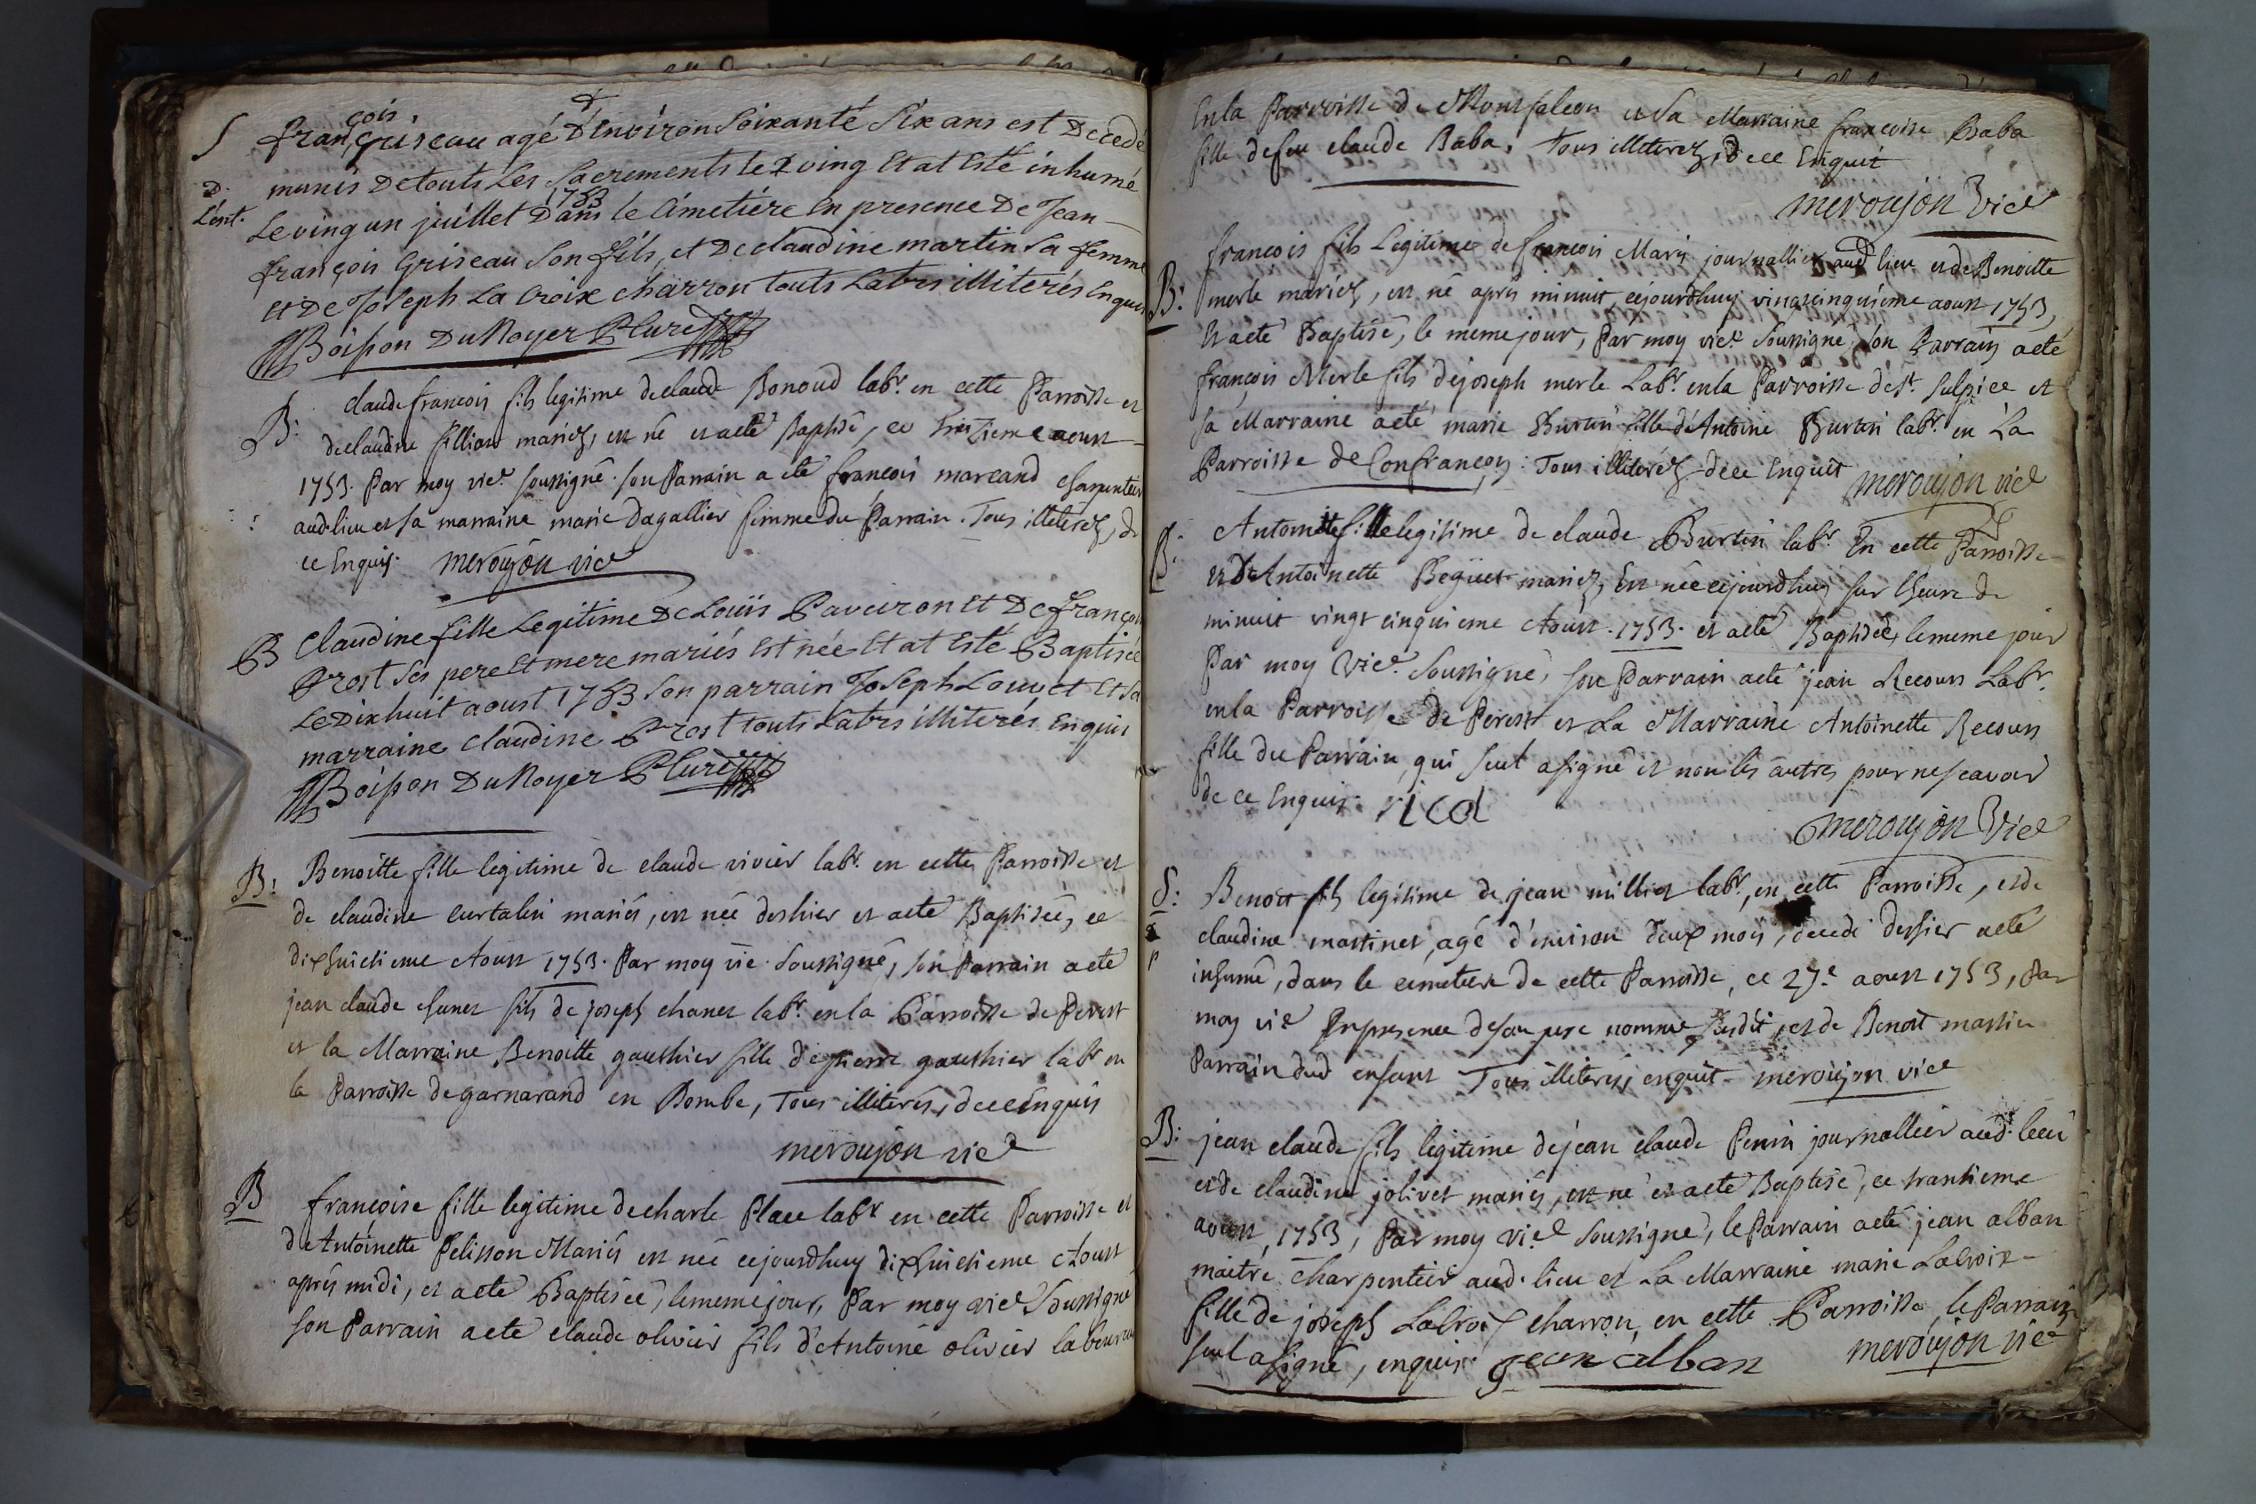 S
françois griseau agé D'Environ Soixante Six ans est Decedé
D.
munis De touts Les Sacrements le ving Et at Esté inhumé
L'ent.
Le ving un juillet 1753 Dans le Cimetiére En presence De Jean
françois Griseau Son fils, et De claudine martin Sa femme
et De Joseph La Croix charron touts Latres illiterés Enquis
Boisson Du Noyer P Curé
B:
claude francois fils legitime de claude Bonoud labr. en cette Parroisse et
de claudine fillion mariez, est né et a eté Baptisé, ce treizieme aoust
1753. Par moy vic.e soussigné. son Parrain a eté francois marcand charpentier
aud. lieu et sa marraine marie Dagallier femme du Parrain. Tous illiterez, de
ce Enquis. meroujon vice
B
Claudine fille Legitime De Loüis Paveiron Et De françoise
Prost Ses pere Et mere mariés Est née Et at Esté Baptisée
Le Dixhuit aoust 1753 Son parrain Joseph Louvet Et Sa
marraine claudine Prost touts Latres illiterés Enquis
Boisson Du Noyer P Curé
B:
Benoitte fille legitime de claude vivier labr. en cette Parroisse et
de claudine Curtalin mariés, est née deshier et a eté Baptisée, ce
dixhuictieme Aoust 1753. Par moy vic. soussigné, son Parrain a eté
jean claude chanet fils de joseph chanet labr. en la Parroisse de Perost
et la Marraine Benoitte gauthier fille de pierre gauthier labr en
la Parroisse de garnarand en Bombe, Tous illiterés, de ce enquis
meroujon vice
B
françoise fille legitime de charle Place labr en cette Parroisse et
d'Antoinette Pelisson Mariés est née cejourdhuy dixhuictieme Aoust
aprés midi, et a eté Baptisée, le meme jour, Par moy vice Soussigné
son Parrain a eté claude olivier fils d'Antoine olivier laboureur
En la Parroisse de Montfalcon et Sa Marraine françoise Baba
fille de feu claude Baba. Tous illiterez, de ce Enquit
meroujon Vice
francois fils Legitime de francois Marin journallier aud lieu et de Benoitte
B:
merle mariez, est né aprés minuit, cejourdhuy vingtcinquieme aoust 1753,
Et a eté Baptisé, le meme jour, Par moy vic.e Soussigné, Son Parrain a eté
françois Merle fils de joseph merle Labr. en la Parroisse de St. Sulpice et
Sa Marraine a eté marie Burtin fille d'Antoine Burtin labr. en La
Parroisse de Confrançon: Tous illiterez de ce Enquit meroujon vice
B:
Antoinette fille legitime de claude Burtin labr. En cette Parroisse
et D'Antoinette Beguet mariez, Est née cejourdhuy sur lheure de
minuit vingt cinquieme Aoust. 1753. et a eté Baptisée, le meme jour
Par moy Vice. Soussigné, son Parrain a eté jean Recoun Labr.
en la Parroisse de Perost et La Marraine Antoinette Recoun
fille du Parrain, qui seul a signé et non les autres pour ne scavoir
de ce Enquis.
meroujon Vice
S:
Benoit fils legitime de jean millier labr, en cette Parroisse, et de
claudine martinet, agé d'environ deux mois, decedé deshier a eté
inhumé, dans le cimetiere de cette Parroisse, ce 27.e aoust 1753, Par
moy vic.e En presence de son pere nommé susdit, et de Benoit martin
Parrain dud enfant Tous illiterés, enquit. meroujon vice
B:
jean claude fils legitime de jean claude Perrin journallier aud. lieu
et de claudine jolivet mariés, est né et a eté Baptisé, ce trantieme
aoust, 1753, Par moy Vice soussigné, le Parrain a eté jean alban
maitre charpentier aud. lieu et La Marraine marie Lacroix
fille de joseph Lacroix charron, en cette Parroisse, le Parrain
seul a signé, enquis. jean alban meroujon vice